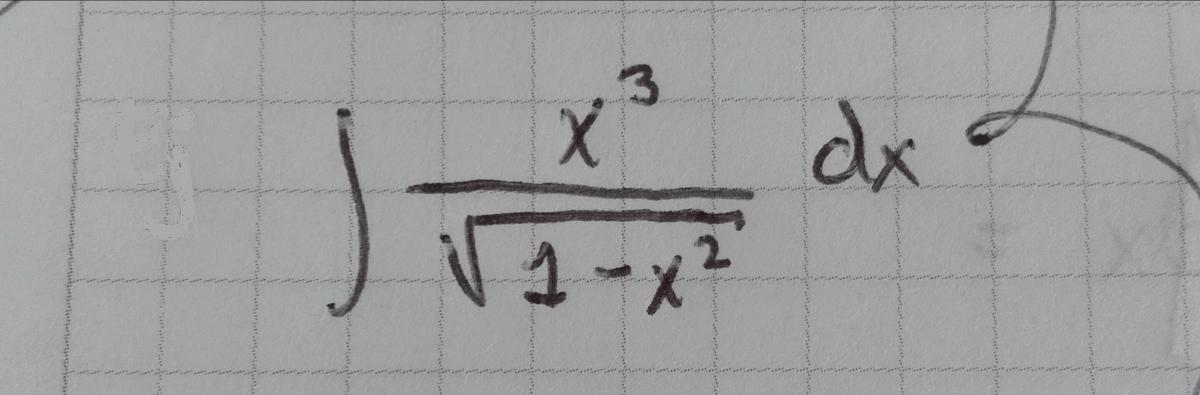 ∫ x³/√(1-x²) dx